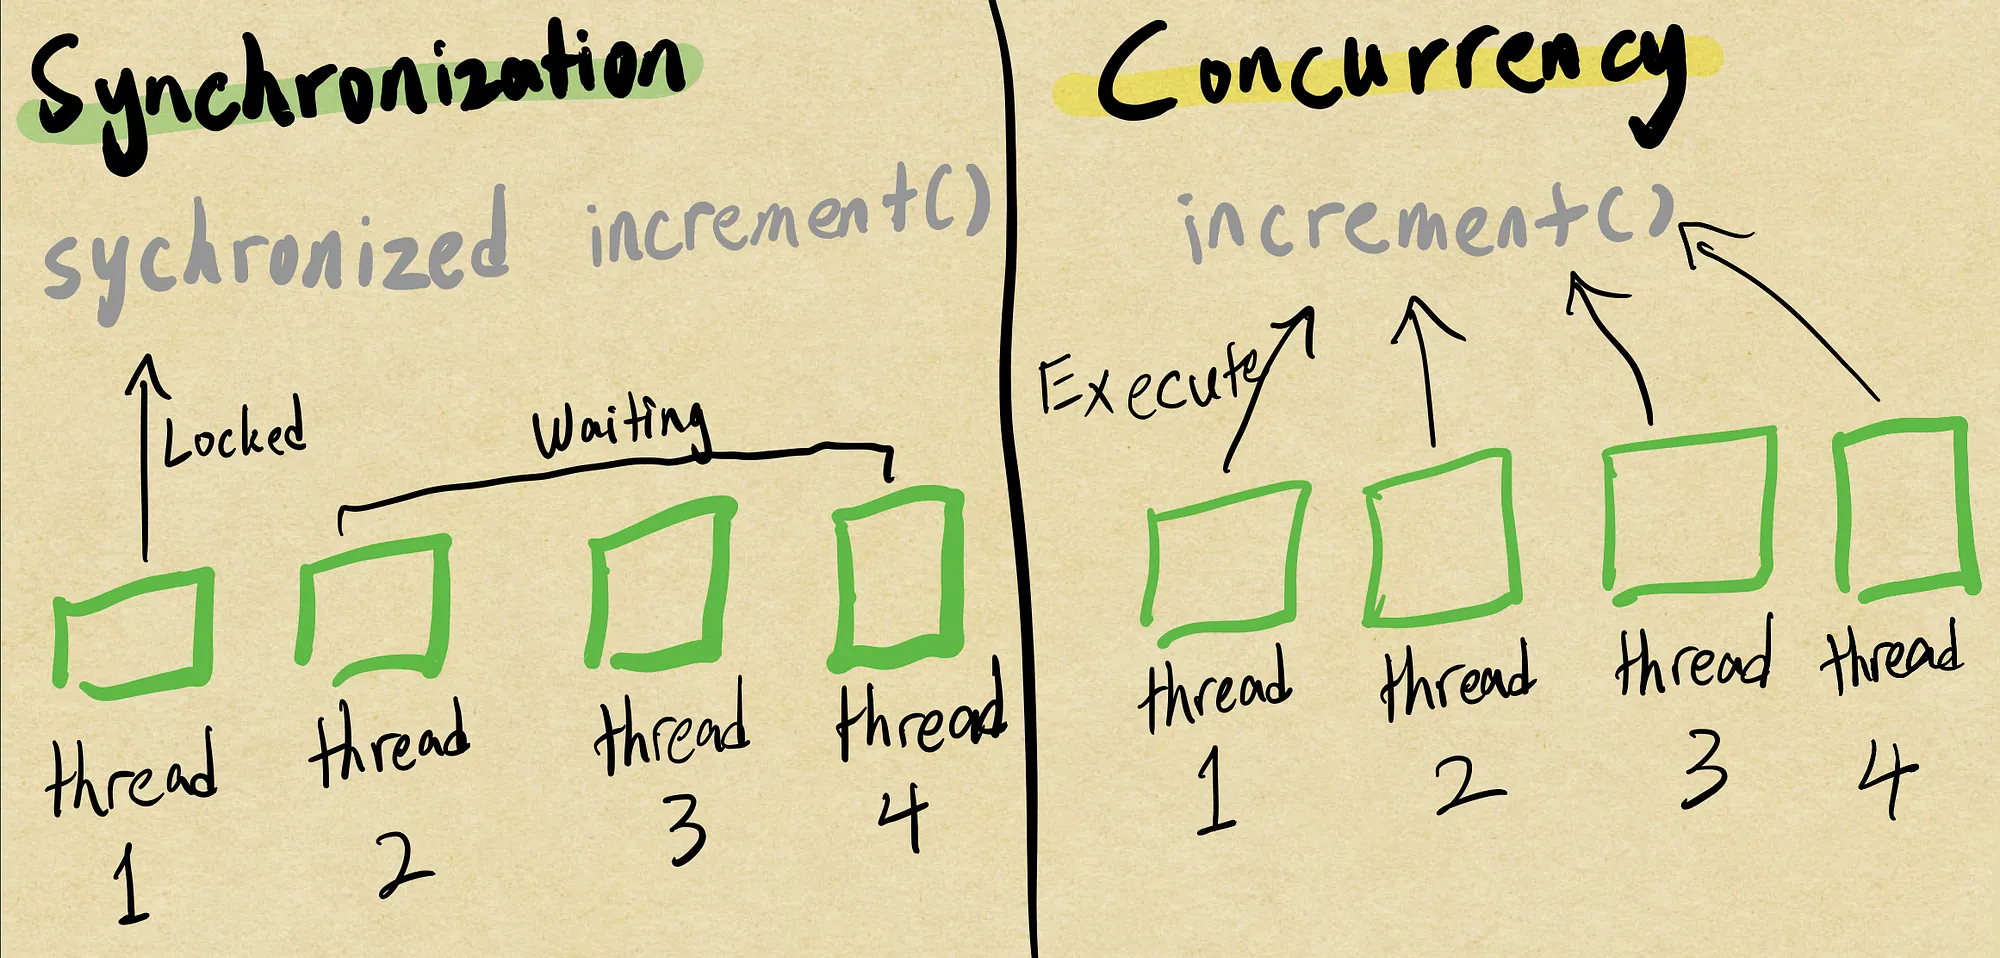 Synchronization
sychronized increment()
Locked
Waiting
thread
1
thread
2
thread
3
thread
4
Concurrency
increment()
Execute
thread
1
thread
2
thread
3
thread
4